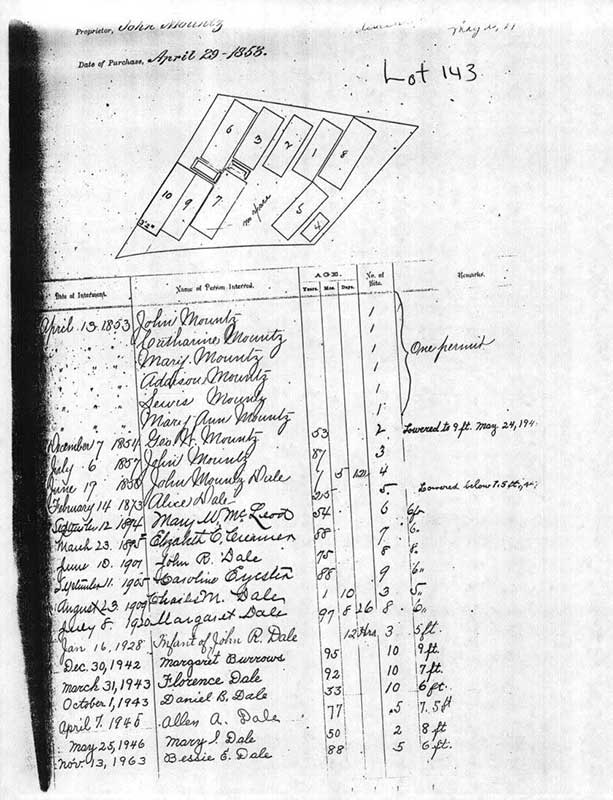 Proprietor, John Mountz
Date of Purchase, April 29-1853.
Lot 143
6 3 2 1 8
10 9 7 no space 5 4
AGE.
Date of Interment. Name of Person Interred. Years. Mos. Days. No. of Site. Remarks.
April 13. 1853 John Mountz 1
" " Catharine Mountz 1
" " Mary Mountz 1 One permit
" " Addison Mountz 1
" " Lewis Mountz 1
" " Mary Ann Mountz 1
December 7 Geo W. Mountz 53 2 Lowered to 9 ft. May 24, 194
July 6 1857 John Mountz 87 3
June 17 John Mountz Dale 1 5 4
February 14 1873 Alice Dale 5 Lowered below 7.5 ft.
September 12 1894 Mary W. McLeod 54 6 6 ft
March 23. 1895 Elizabeth C. 88 7 6 "
June 10. 1901 John R. Dale 75 8 8 "
September 11. 1905 Caroline 88 9 6 "
August 23. 1909 Charles M. Dale 1 10 3 5 "
July 8. 1920 Margaret Dale 97 8 26 8 6 "
Jan 16, 1928 Infant of John R. Dale 12 Hrs. 3 5 ft.
Dec. 30, 1942 Margaret Burrows 95 10 9 ft
March 31, 1943 Florence Dale 92 10 7 ft.
October 1, 1943 Daniel B. Dale 53 10 6 ft.
April 7. 1945 Allen A. Dale 77 5 7.5 ft
May 25, 1946 Mary I. Dale 50 2 8 ft
Nov. 13, 1963 Bessie E. Dale 88 5 6 ft.